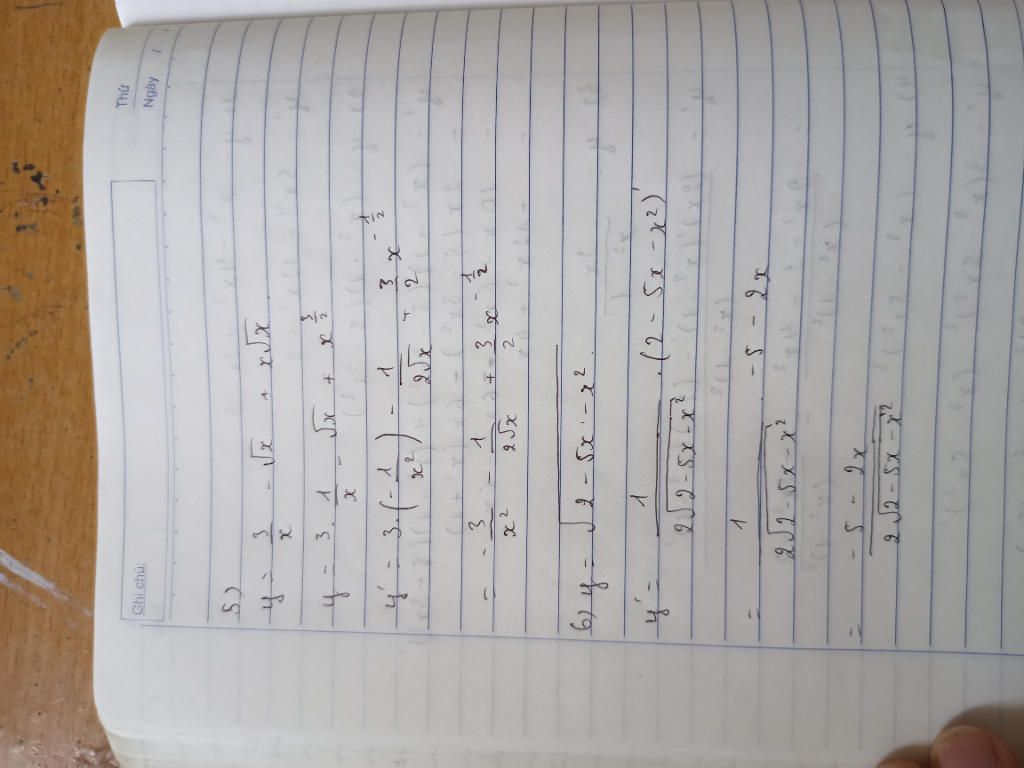 Ghi chú:
Thứ
Ngày / /
5)
y = 3/x - √x + x√x
y = 3 . 1/x - √x + x^(3/2)
y' = 3 . (- 1/x²) - 1/(2√x) + 3/2 x^(-1/2)
= - 3/x² - 1/(2√x) + 3/2 x^(-1/2)
6) y = √(2 - 5x - x²)
y' = 1/(2√(2 - 5x - x²)) . (2 - 5x - x²)'
= 1/(2√(2 - 5x - x²)) . -5 - 2x
= (-5 - 2x)/(2√(2 - 5x - x²))